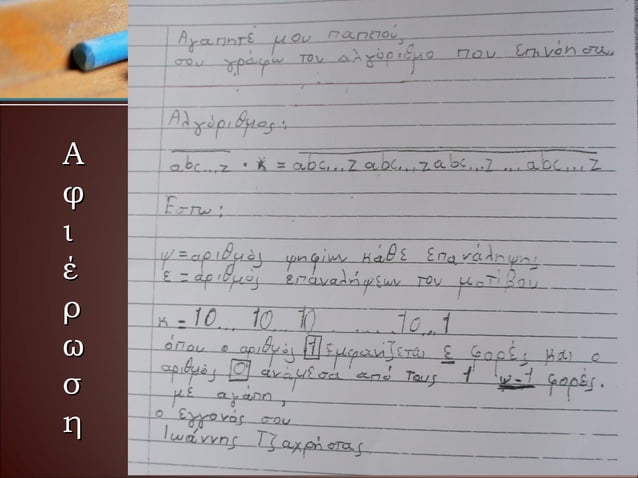 Αφιέρωση
Αγαπητέ μου παππού,
σου γράφω τον αλγόριθμο που επινόησα.
Αλγόριθμος:
abc...z · κ = abc...z abc...z abc...z ... abc...z
Έστω:
ψ = αριθμός ψηφίων κάθε επανάληψης
ε = αριθμός επαναλήψεων του μοτίβου
κ = 10... 10... 10 ..... 10...1
όπου ο αριθμός 1 εμφανίζεται ε φορές και ο
αριθμός 0 ανάμεσα από τους 1 ψ-1 φορές.
με αγάπη,
ο εγγονός σου
Ιωάννης Τζαχρήστας